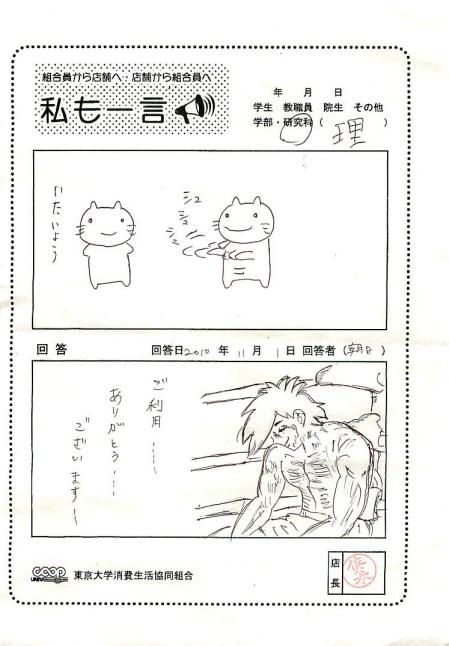 組合員から店舗へ・店舗から組合員へ
私も一言
年 月 日
学生 教職員 院生 その他
学部・研究科( 理 )
いたいよう
シュ
シュ
シュ
回答 回答日2010年11月1日 回答者(朝日)
ご利用……
ありがとう……
ございます……
coop
UNIV
東京大学消費生活協同組合
店長